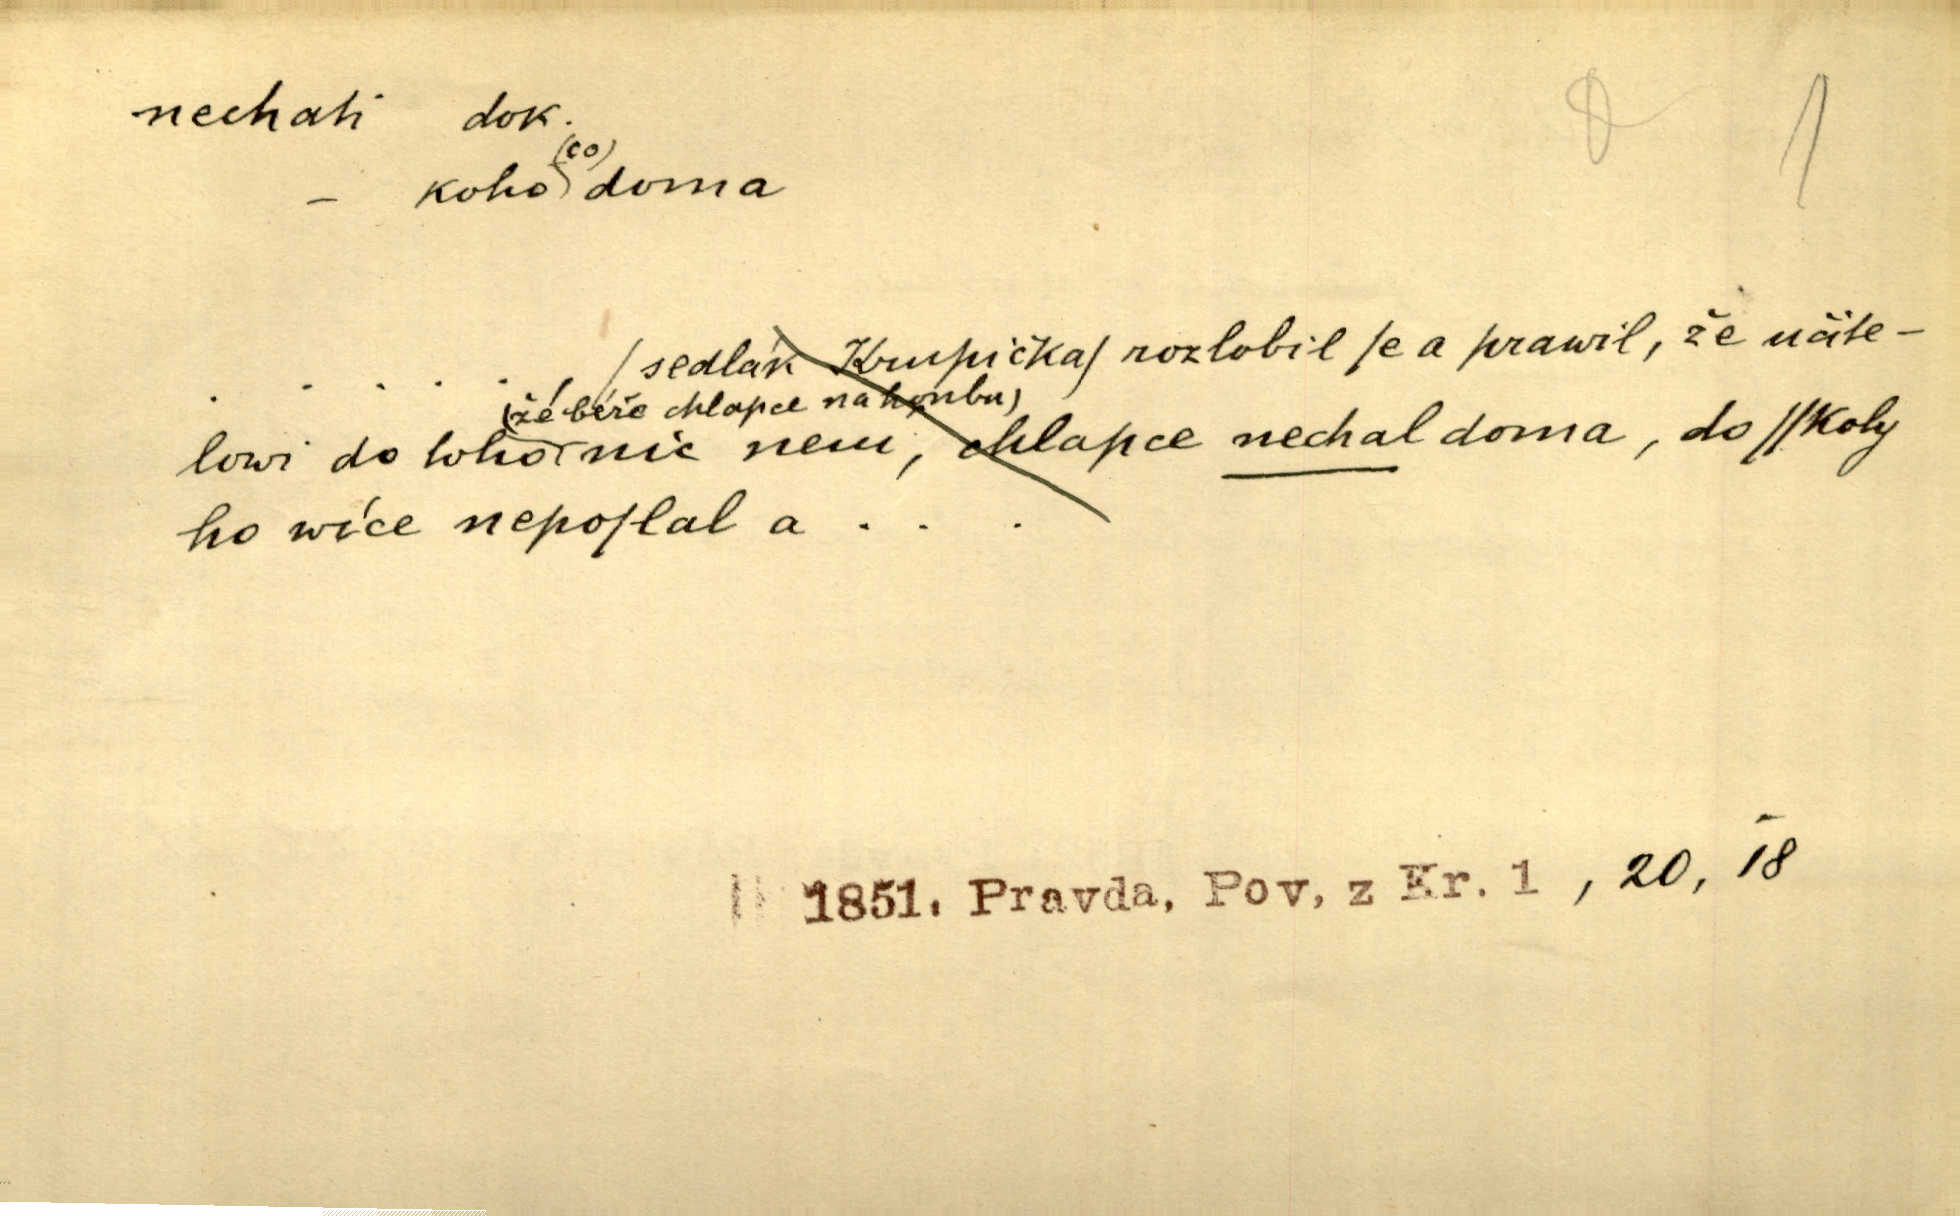 nechati dok.
(co)
– koho doma
. . . . . , /sedlák Krupička/ rozlobil ſe a prawil, že učite-
(že béře chlapce na honbu)
lowi do toho nic nenj, chlapce nechal doma, do ſſkoly
ho wíce nepoſlal a . . .
1851. Pravda, Pov. z Kr. 1 , 20, 18